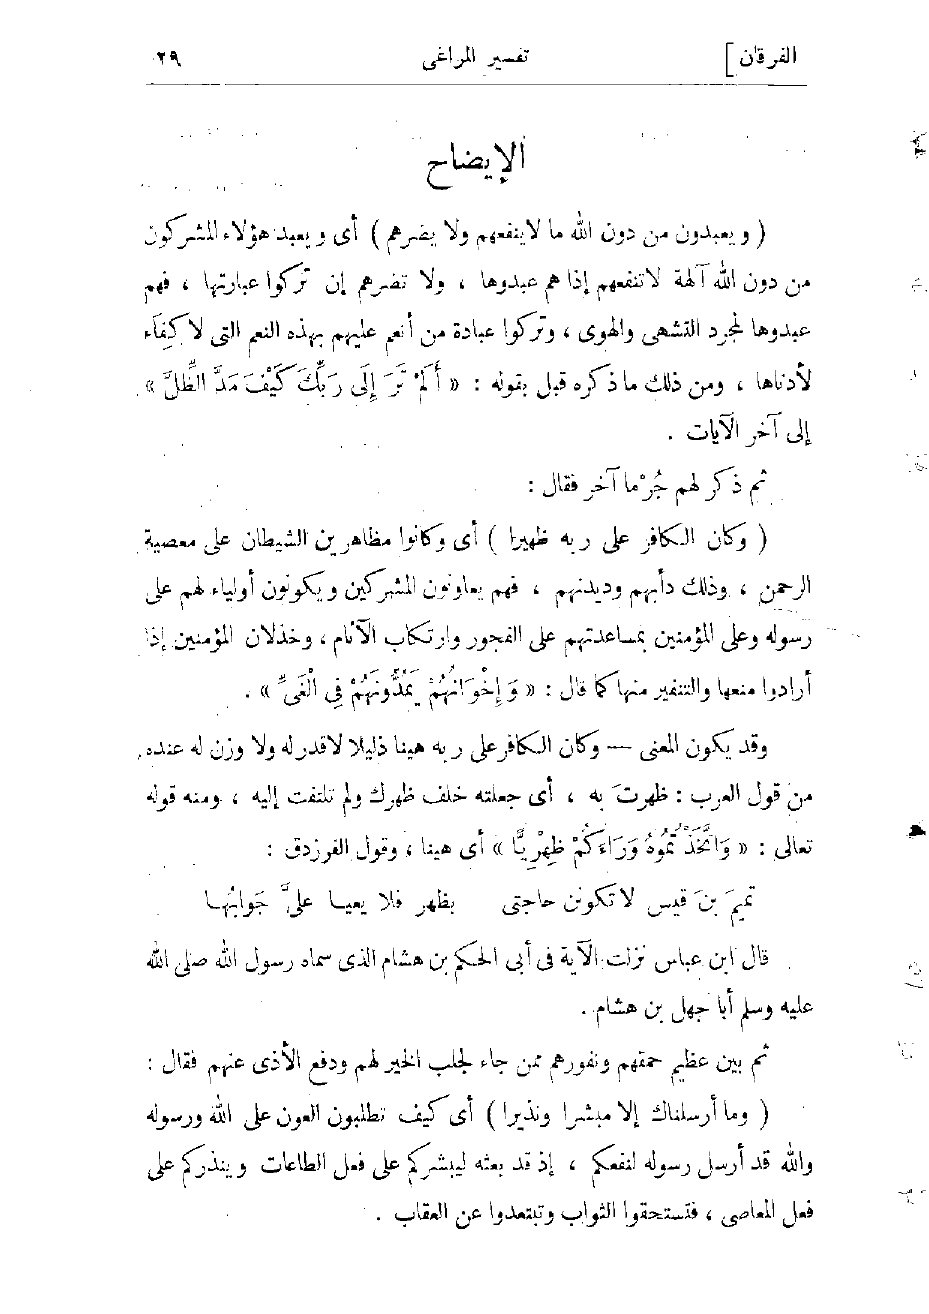 الفرقان] تفسير المراغى ٢٩
الإيضاح
( ويعبدون من دون الله ما لاينفعهم ولا يضرهم ) أى ويعبد هؤلاء المشركون
من دون الله آلهة لاتنفعهم إذا هم عبدوها ، ولا تضرهم إن تركوا عبارتها ، فهم
عبدوها لمجرد التشهى والهوى ، وتركوا عبادة من أنعم عليهم بهذه النعم التى لا كِفَاء
لأدناها ، ومن ذلك ما ذكره قبل بقوله : « أَلَمْ تَرَ إِلَى رَبِّكَ كَيْفَ مَدَّ الظِّلَّ »
إلى آخر الآيات .
ثم ذكر لهم جُرْما آخر فقال :
( وكان الكافر على ربه ظهيرا ) أى وكانوا مظاهرين الشيطان على معصية
الرحمن ، وذلك دأبهم وديدنهم ، فهم يعاونون المشركين ويكونون أولياء لهم على
رسوله وعلى المؤمنين بمساعدتهم على الفجور وارتكاب الآثام ، وخذلان المؤمنين إذا
أرادوا منعها والتنفير منها كما قال : « وَإِخْوَانُهُمْ يَمُدُّونَهُمْ فِى الْغَىِّ » .
وقد يكون المعنى — وكان الكافر على ربه هينا ذليلا لاقدر له ولا وزن له عنده ،
من قول العرب : ظهرت به ، أى جعلته خلف ظهرك ولم تلتفت إليه ، ومنه قوله
تعالى : « وَاتَّخَذْتُمُوهُ وَرَاءَكُمْ ظِهْرِيًّا » أى هينا ، وقول الفرزدق :
تميمَ بنَ قيس لا تكونن حاجتى بظهر فلا يعيا علىَّ جَوابُها
قال ابن عباس نزلت الآية فى أبى الحكم بن هشام الذى سماه رسول الله صلى الله
عليه وسلم أبا جهل بن هشام .
ثم بين عظيم حمقهم ونفورهم ممن جاء لجلب الخير لهم ودفع الأذى عنهم فقال :
( وما أرسلناك إلا مبشرا ونذيرا ) أى كيف تطلبون العون على الله ورسوله
والله قد أرسل رسوله لنفعكم ، إذ قد بعثه ليبشركم على فعل الطاعات وينذركم على
فعل المعاصى ، فتستحقوا الثواب وتبتعدوا عن العقاب .